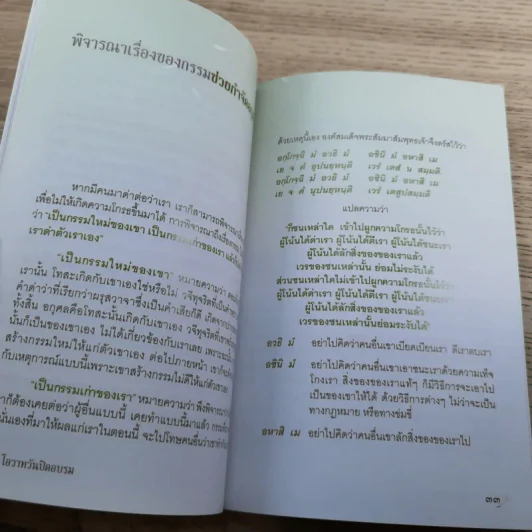 พิจารณาเรื่องของกรรมช่วยกำจัด
หากมีคนมาด่าต่อว่าเรา เราก็สามารถพิจารณา
เพื่อไม่ให้เกิดความโกรธขึ้นมาได้ การพิจารณาถึงเรื่อง
ว่า "เป็นกรรมใหม่ของเขา เป็นกรรมเก่าของเรา
เราด่าตัวเราเอง"
"เป็นกรรมใหม่ของเขา" หมายความว่า
เรานั้น โทสะเกิดกับเขาเองใช่หรือไม่ วจีทุจริต
คำด่าว่าที่เรียกว่าผรุสวาจาซึ่งเป็นคำเสียก็ดี เกิดจาก
ทั้งสิ้น อกุศลคือโทสะนั้นเกิดกับเขาเอง วจีทุจริต
นั้นก็เป็นของเขาเอง ไม่ได้เกี่ยวข้องกับเราเลย เพราะฉะนั้น
สร้างกรรมใหม่ให้แก่ตัวเขาเอง ต่อไปภายหน้า เขาก็จะ
กับเหตุการณ์แบบนี้เพราะเขาสร้างกรรมไม่ดีให้แก่ตัว
"เป็นกรรมเก่าของเรา" หมายความว่า พึงพิจารณา
ก็ต้องเคยต่อว่าผู้อื่นแบบนี้ เคยทำแบบนี้มาแล้ว กรรม
นั่นเองที่มาให้ผลแก่เราในตอนนี้ จะไปโทษคนอื่น
โอวาทวันปิดอบรม
ด้วยเหตุนี้เอง องค์สมเด็จพระสัมมาสัมพุทธเจ้าจึงตรัสไว้ว่า
อกฺโกจฺฉิ มํ อวธิ มํ อชินิ มํ อหาสิ เม
เย จ ตํ อุปนยฺหนฺติ เวรํ เตสํ น สมฺมติ.
อกฺโกจฺฉิ มํ อวธิ มํ อชินิ มํ อหาสิ เม
เย จ ตํ นุปนยฺหนฺติ เวรํ เตสูปสมฺมติ.
แปลความว่า
"ก็ชนเหล่าใด เข้าไปผูกความโกรธนั้นไว้ว่า
ผู้โน้นได้ด่าเรา ผู้โน้นได้ตีเรา ผู้โน้นได้ชนะเรา
ผู้โน้นได้ลักสิ่งของของเราแล้ว
เวรของชนเหล่านั้น ย่อมไม่ระงับได้
ส่วนชนเหล่าใดไม่เข้าไปผูกความโกรธนั้นไว้ว่า
ผู้โน้นได้ด่าเรา ผู้โน้นได้ตีเรา ผู้โน้นได้ชนะเรา
ผู้โน้นได้ลักสิ่งของของเราแล้ว
เวรของชนเหล่านั้นย่อมระงับได้"
อวธิ มํ อย่าไปคิดว่าคนอื่นเขาเบียดเบียนเรา ตีเราตบเรา
อชินิ มํ อย่าไปคิดว่าคนอื่นเขาเอาชนะเราด้วยความเท็จ
โกงเรา สิ่งของของเราแท้ๆ ก็มีวิธีการจะเอาไป
เป็นของเขาให้ได้ ด้วยวิธีการต่างๆ ไม่ว่าจะเป็น
ทางกฎหมาย หรือทางข่มขี่
อหาสิ เม อย่าไปคิดว่าคนอื่นเขาลักสิ่งของของเราไป
๓๓